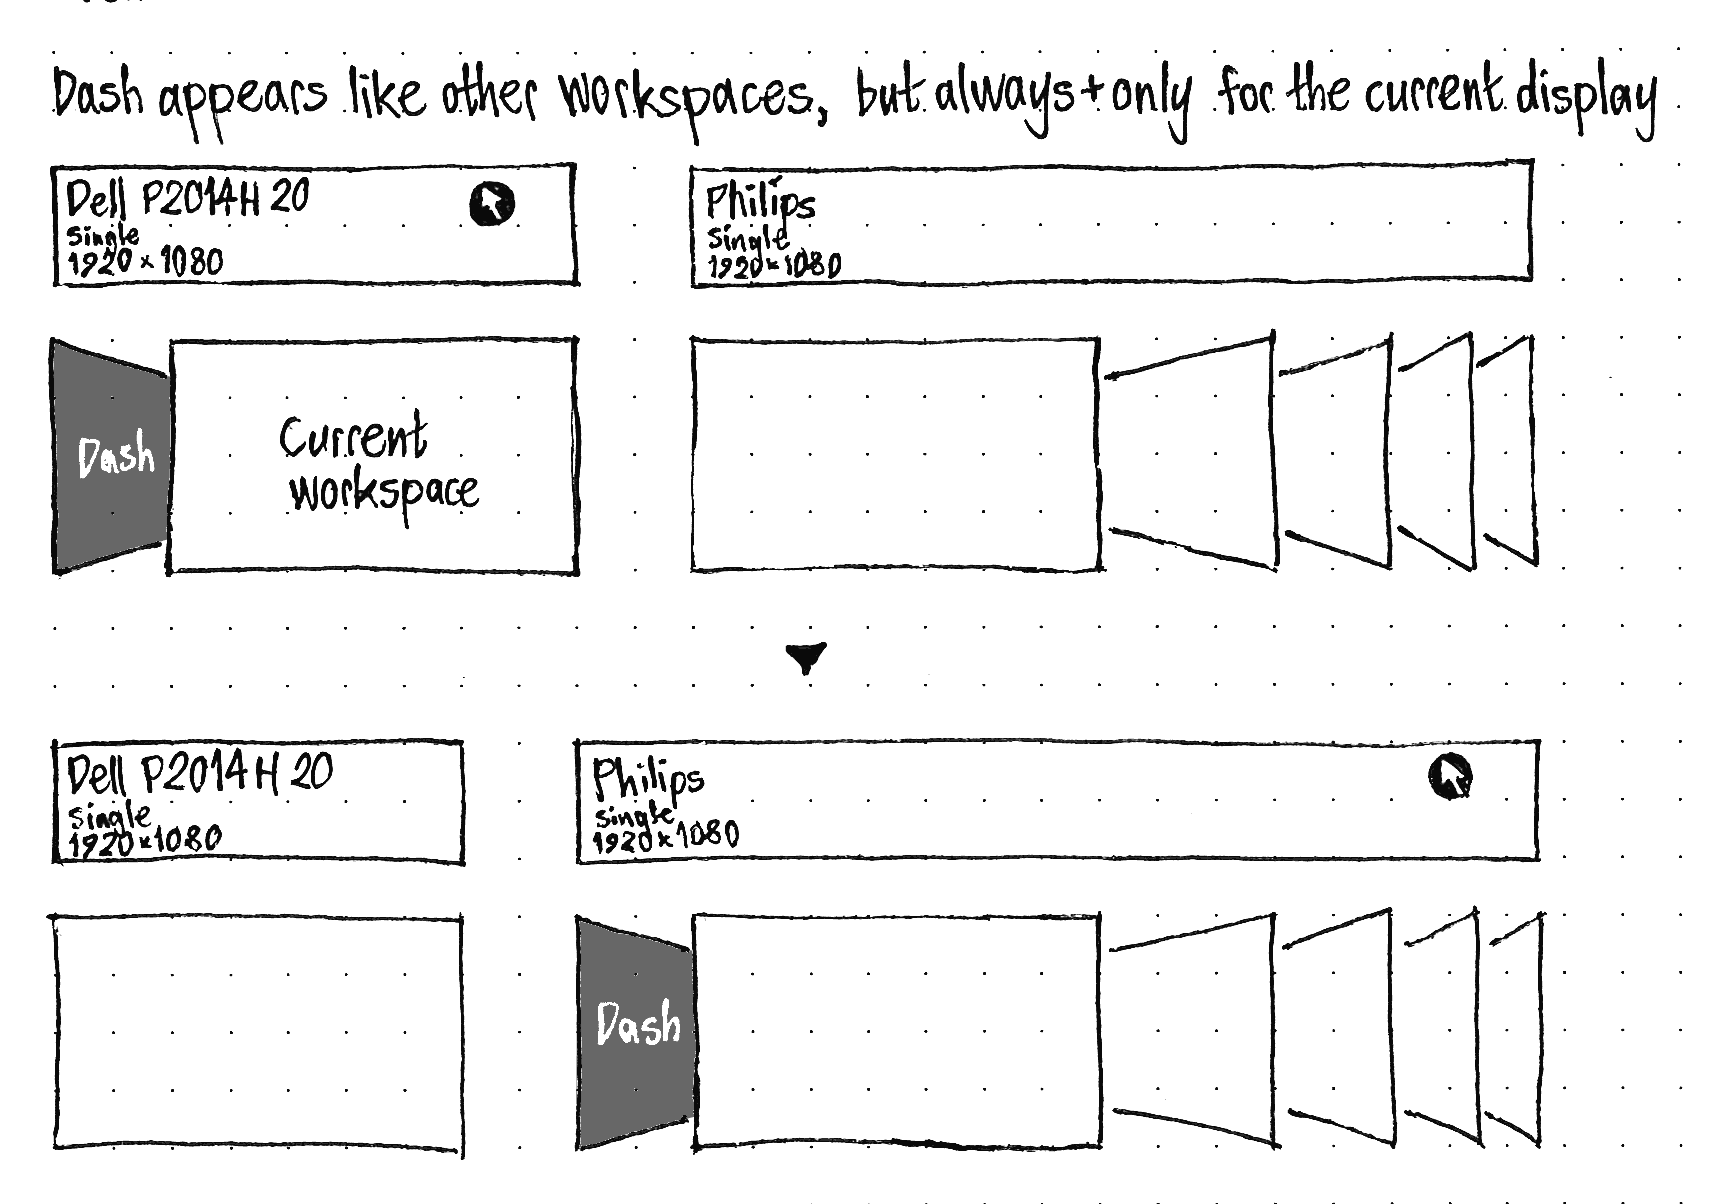 Dash appears like other workspaces, but always+only for the current display
Dell P2014H 20
single
1920×1080
Philips
single
1920×1080
Dash
Current
workspace
Dell P2014H 20
single
1920×1080
Philips
single
1920×1080
Dash